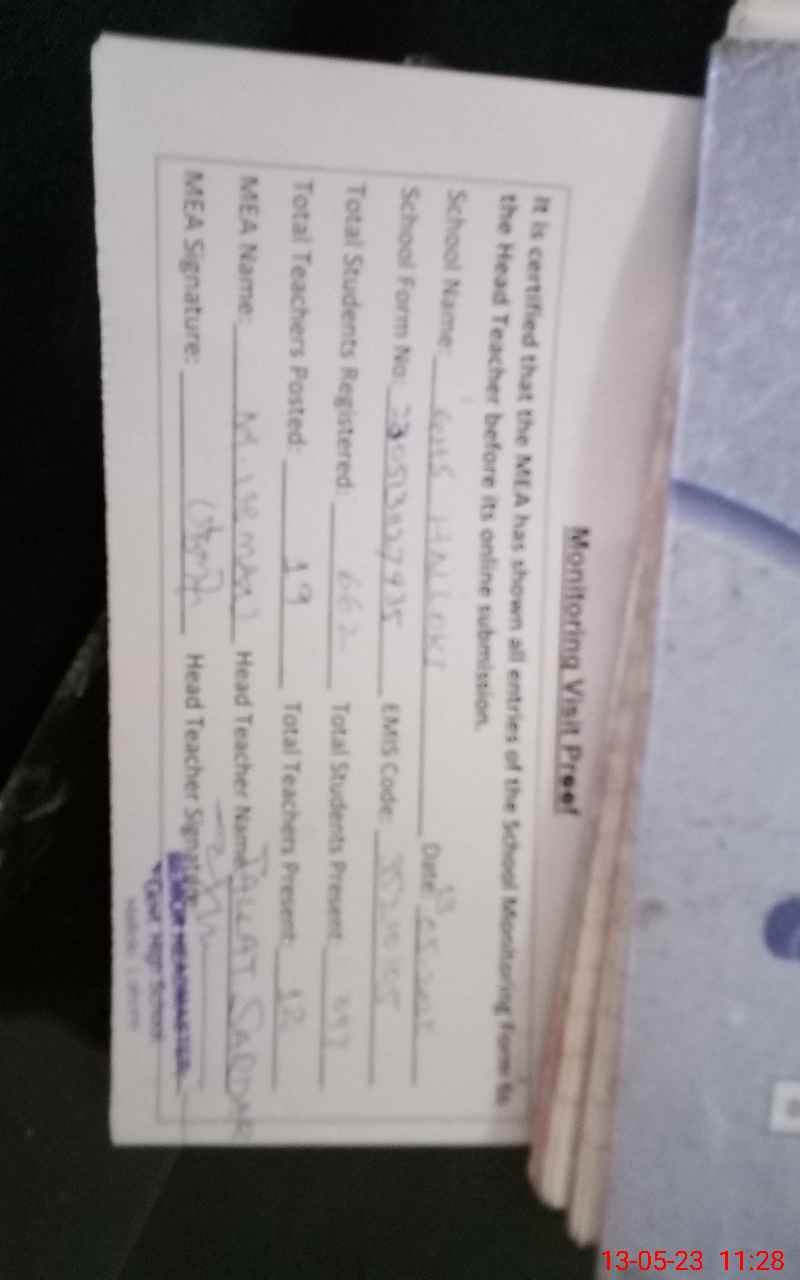 Monitoring Visit Proof
It is certified that the MEA has shown all entries of the School Monitoring Form to
the Head Teacher before its online submission.
School Name: GHS Date: 13
School Form No: EMIS Code:
Total Students Registered: 662 Total Students Present:
Total Teachers Posted: 19 Total Teachers Present: 12
MEA Name: M. Head Teacher Name: TALLAT SARDAR
MEA Signature: Head Teacher Signature:
SENIOR HEADMASTER
Govt. High School
13-05-23 11:28